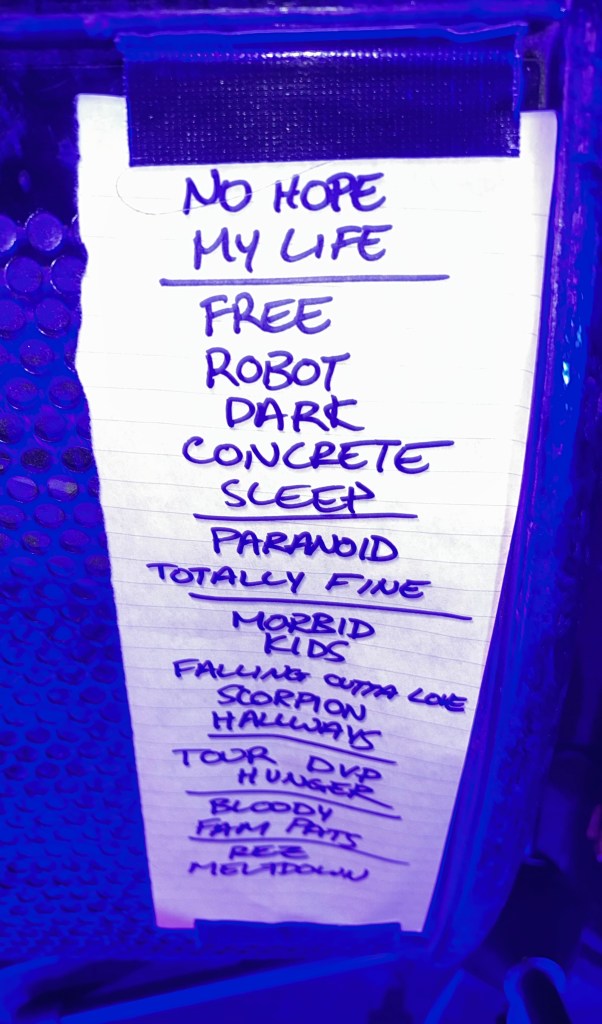 NO HOPE
MY LIFE
FREE
ROBOT
DARK
CONCRETE
SLEEP
PARANOID
TOTALLY FINE
MORBID
KIDS
FALLING OUTTA LOVE
SCORPION
HALLWAYS
TOUR DVP
HUNGER
BLOODY
FAM PATS
REZ
MELTDOWN